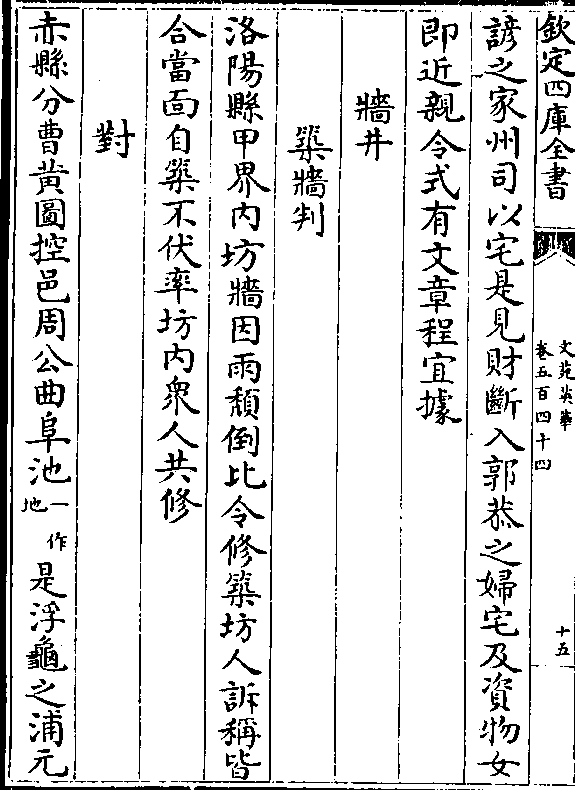 欽定四庫全書
文苑英華
卷五百四十四
十五
諺之家州司以宅是見財斷入郭恭之婦宅及資物女
即近親令式有文章程宜據
牆井
築牆判
洛陽縣甲界内坊牆因雨頽倒比令修築坊人訴稱皆
合當面自築不伏率坊内衆人共修
對
赤縣分曹黄圖控邑周公曲阜池一作地是浮龜之浦元